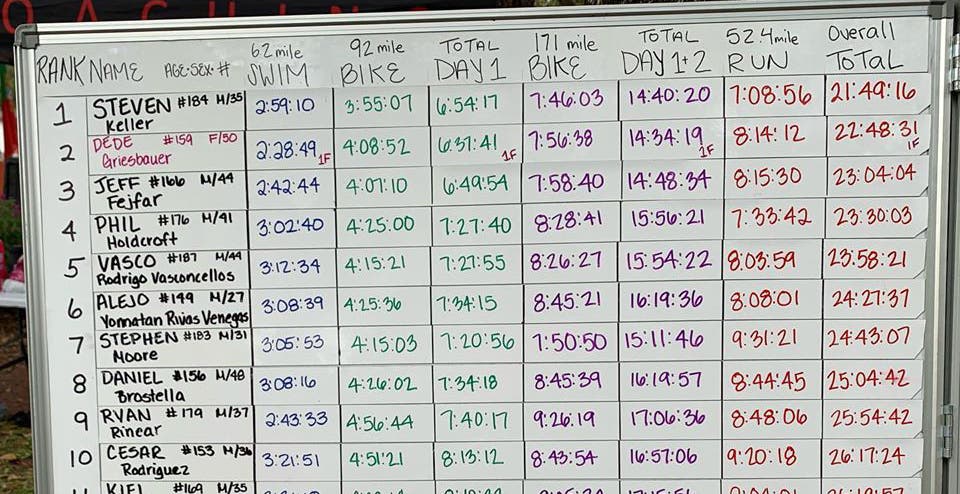 OACHING
6.2 mile 92 mile TOTAL 171 mile TOTAL 52.4 mile Overall
RANK NAME AGE-SEX-# SWIM BIKE DAY 1 BIKE DAY 1+2 RUN TOTAL
1 STEVEN #184 M/35 2:59:10 3:55:07 6:54:17 7:46:03 14:40:20 7:08:56 21:49:16
Keller
2 DEDE #159 F/50 2:28:49 1F 4:08:52 6:37:41 1F 7:56:38 14:34:19 1F 8:14:12 22:48:31 1F
Griesbauer
3 JEFF #166 M/44 2:42:44 4:07:10 6:49:54 7:58:40 14:48:34 8:15:30 23:04:04
Fejfar
4 PHIL #176 M/41 3:02:40 4:25:00 7:27:40 8:28:41 15:56:21 7:33:42 23:30:03
Holdcroft
5 VASCO #187 M/44 3:12:34 4:15:21 7:27:55 8:26:27 15:54:22 8:03:59 23:58:21
Rodrigo Vasconcellos
6 ALEJO #199 M/27 3:08:39 4:25:36 7:34:15 8:45:21 16:19:36 8:08:01 24:27:37
Yonnatan Rivas Venegas
7 STEPHEN #183 M/31 3:05:53 4:15:03 7:20:56 7:50:50 15:11:46 9:31:21 24:43:07
Moore
8 DANIEL #156 M/48 3:08:16 4:26:02 7:34:18 8:45:39 16:19:57 8:44:45 25:04:42
Brastella
9 RYAN #179 M/37 2:43:33 4:56:44 7:40:17 9:26:19 17:06:36 8:48:06 25:54:42
Rinear
10 CESAR #153 M/36 3:21:51 4:51:21 8:13:12 8:43:54 16:57:06 9:20:18 26:17:24
Rodriguez
KIEL #169 M/35